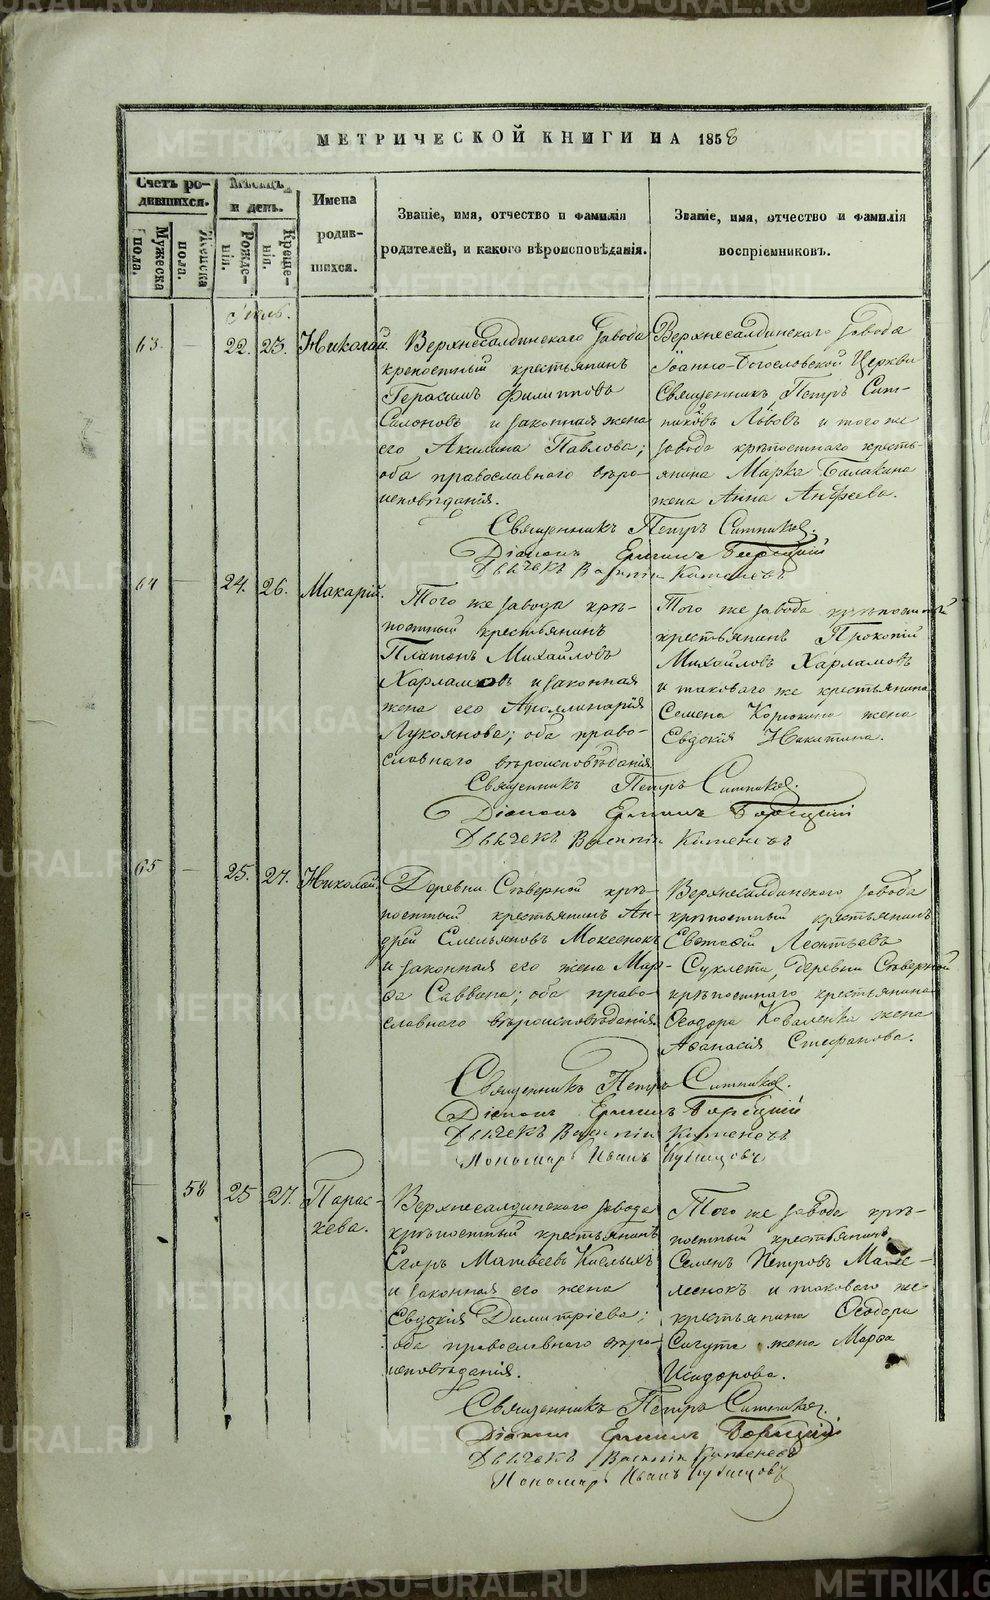 МЕТРИЧЕСКОЙ КНИГИ НА 1858
Счетъ ро-
дившихся.
Мѣсяцъ
и день.
Имена
родив-
шихся.
Званіе, имя, отчество и фамилія
родителей, и какого вѣроисповѣданія.
Званіе, имя, отчество и фамилія
воспріемниковъ.
Мужеска
пола.
Женска
пола.
Рожде-
нія.
Креще-
нія.
63. — 22. 23. Николай.
Верхнесалдинскаго завода
крепостный крестьянинъ
Герасимъ Филиповъ
и законная жена
его Акилина Павлова;
оба православнаго вѣро-
исповѣданія.
Верхнесалдинскаго завода
Іоанно-Богословской Церкви
Священникъ Петръ Сит-
никовъ Львовъ и того же
завода крѣпостнаго кресть-
янина Марка Балакина
жена Анна
Священникъ Петръ Ситниковъ.
Діаконъ
Дьячекъ Василій
64 — 24. 26. Макарій.
Того же завода крѣ-
постный крестьянинъ
Платонъ Михайловъ
Харламовъ и законная
жена его Аполлинарія
Лукоянова; оба право-
славнаго вѣроисповѣданія
Того же завода крѣпостный
крестьянинъ Прокопій
Михайловъ Харламовъ
и таковаго же крестьянина
Семена жена
Евдокія Никитина.
Священникъ Петръ Ситниковъ.
Діаконъ
Дьячекъ Василій
65 — 25. 27. Николай.
Деревни Сѣверной крѣ-
постный крестьянинъ Ан-
дрей Емельяновъ Мокеенокъ
и законная его жена Мар-
ѳа Саввина; оба право-
славнаго вѣроисповѣданія.
Верхнесалдинскаго завода
крѣпостный крестьянинъ
Евстафій Леонтьевъ
деревни Сѣверной
крѣпостнаго крестьянина
Ѳеодора Коваленка жена
Афанасія Стефанова.
Священникъ Петръ Ситниковъ.
Діаконъ
Дьячекъ Василій
Пономарь Иванъ Кузнецовъ
— 58 25 27. Парас-
кева.
Верхнесалдинскаго завода
крѣпостный крестьянинъ
Егоръ Матвѣевъ Кислыхъ
и законная его жена
Евдокія Димитріева;
оба православнаго вѣро-
исповѣданія.
Того же завода крѣ-
постный крестьянинъ
Семенъ Петровъ
и таковаго же
крестьянина Ѳеодора
Сигута жена Марѳа
Исидорова.
Священникъ Петръ Ситниковъ.
Діаконъ
Дьячекъ Василій
Пономарь Иванъ Кузнецовъ
METRIKI.GASO-URAL.RU